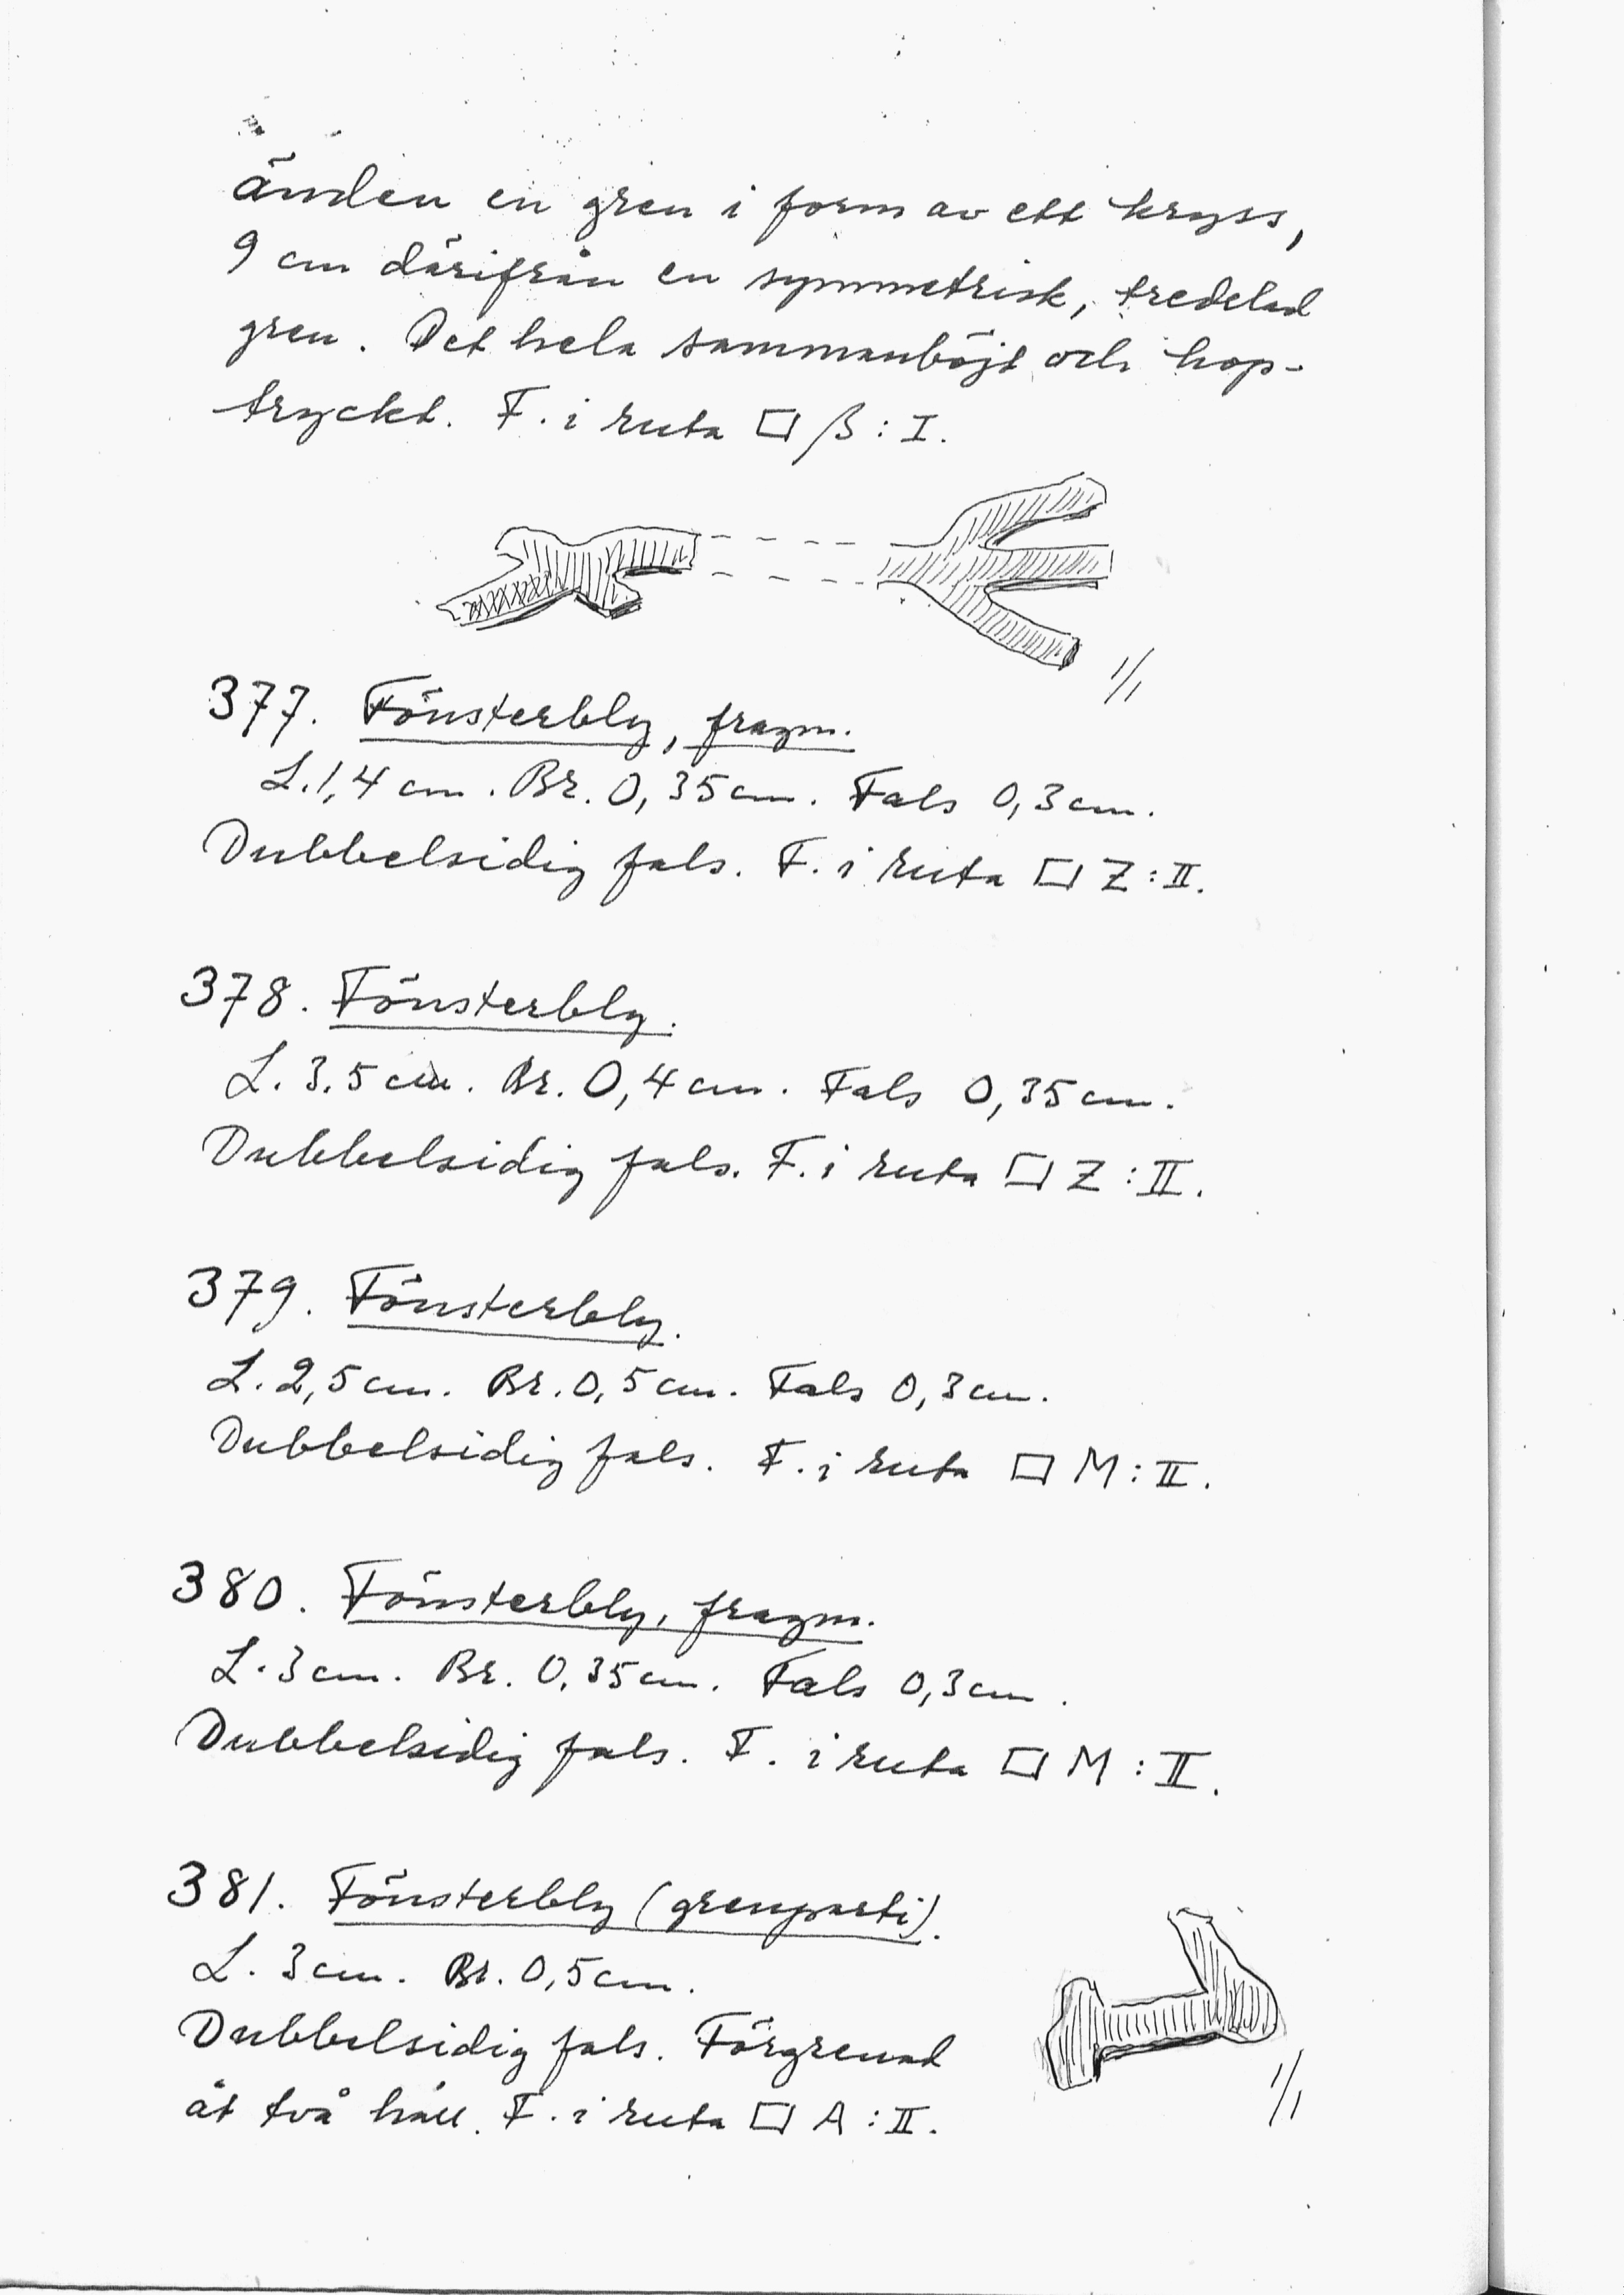 änden en gren i form av ett kryss,
9 cm därifrån en symmetrisk, tredelad
gren. Det hela sammanböjt och hop-
tryckt. F. i ruta □ β : I.
1/1
377. Fönsterbly, fragm.
L. 1,4 cm. Br. 0,35 cm. Fals 0,3 cm.
Dubbelsidig fals. F. i ruta □ Z : II.
378. Fönsterbly.
L. 3.5 cm. Br. 0,4 cm. Fals 0,35 cm.
Dubbelsidig fals. F. i ruta □ Z : II.
379. Fönsterbly.
L. 2,5 cm. Br. 0,5 cm. Fals 0,3 cm.
Dubbelsidig fals. F. i ruta □ M : II.
380. Fönsterbly, fragm.
L. 3 cm. Br. 0,35 cm. Fals 0,3 cm.
Dubbelsidig fals. F. i ruta □ M : II.
381. Fönsterbly (grenparti).
L. 3 cm. Br. 0,5 cm.
Dubbelsidig fals. Förgrenad
åt två håll. F. i ruta □ A : II.
1/1